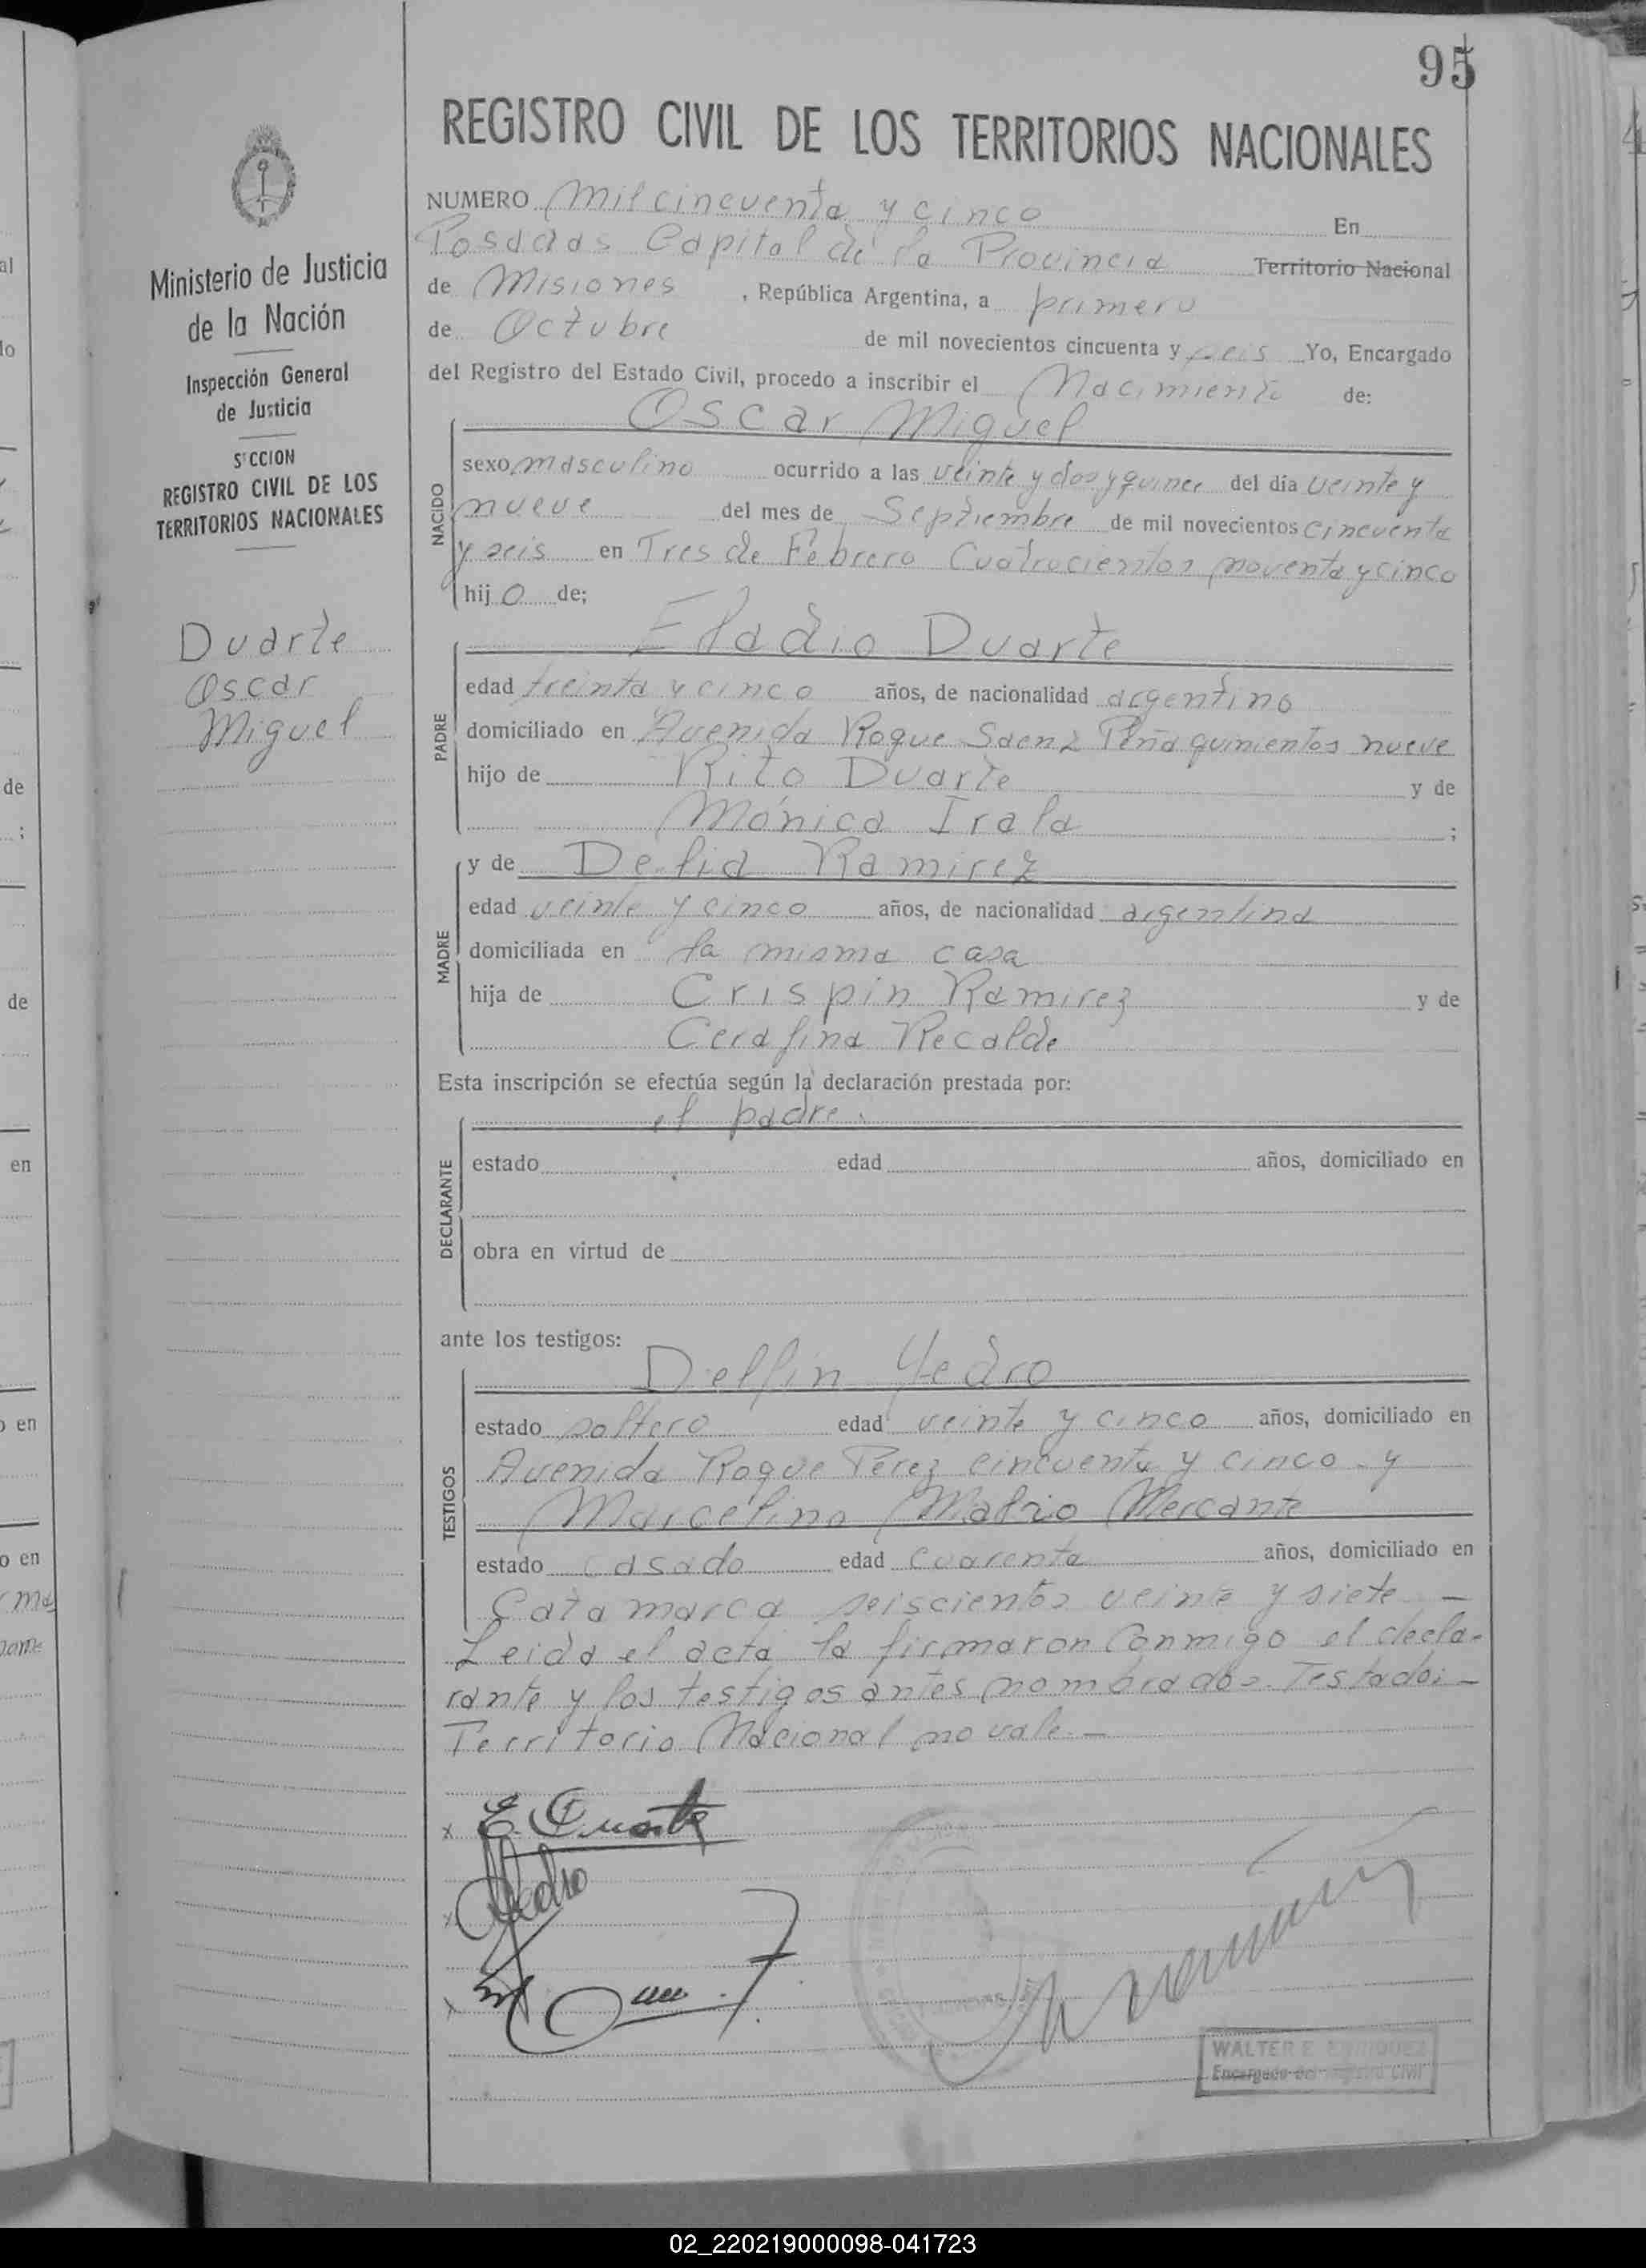 95
REGISTRO CIVIL DE LOS TERRITORIOS NACIONALES
Ministerio de Justicia
de la Nación
Inspección General
de Justicia
S CCION
REGISTRO CIVIL DE LOS
TERRITORIOS NACIONALES
Duarte
Oscar
Miguel
NUMERO Mil cincuenta y cinco En
Posadas Capital de la Provincia Territorio Nacional
de Misiones, República Argentina, a primero
de Octubre de mil novecientos cincuenta y seis Yo, Encargado
del Registro del Estado Civil, procedo a inscribir el Nacimiento de:
Oscar Miguel
NACIDO
sexo masculino ocurrido a las veinte y dos y quince del día veinte y
nueve del mes de Septiembre de mil novecientos cincuenta
y seis en Tres de Febrero Cuatrocientos noventa y cinco
hijo de;
Eladio Duarte
PADRE
edad treinta y cinco años, de nacionalidad argentino
domiciliado en Avenida Roque Saenz Peña quinientos nueve
hijo de Rito Duarte y de
Mónica Irala ;
MADRE
y de Delia Ramirez
edad veinte y cinco años, de nacionalidad argentina
domiciliada en la misma casa
hija de Crispin Ramirez y de
Cerafina Recalde
Esta inscripción se efectúa según la declaración prestada por:
el padre.
DECLARANTE
estado edad años, domiciliado en
obra en virtud de
ante los testigos:
Delfin Yedro
TESTIGOS
estado soltero edad veinte y cinco años, domiciliado en
Avenida Roque Perez cincuenta y cinco - y
Marcelino Mercante
estado casado edad cuarenta años, domiciliado en
Catamarca seiscientos veinte y siete -
Leida el acta la firmaron conmigo el decla-
rante y los testigos antes nombrados. Testado: -
Territorio Nacional no vale -
x E. Duarte
x Yedro
x
WALTER E. ENRIQUEZ
Encargado del Registro Civil
02_220219000098-041723